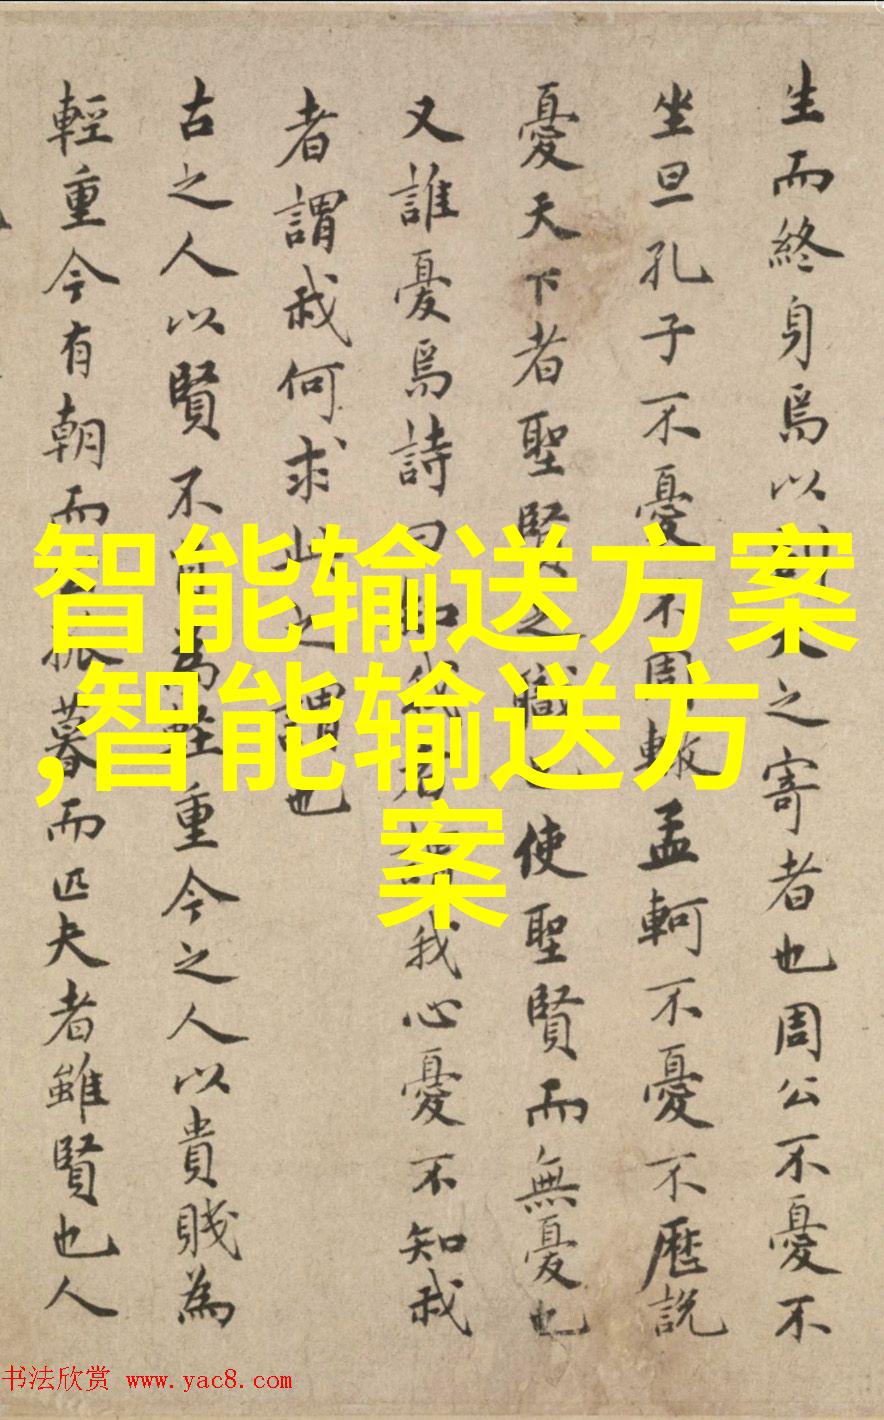 生而終身焉以天之寄者也周公不憂不
坐旦孔子不憂不周轍孟軻不憂不歷說
憂天下者聖賢之職也使聖賢而無憂也
又誰憂焉詩曰知我者謂我心憂不知我
者謂我何求此之謂也
古之人以賢不肖為輕重今之人以貴賤為
輕重今有朝而振暮而匹夫者雖賢也人
智能输送方案
,智能输送方
案
书法欣赏 www.yac8.com